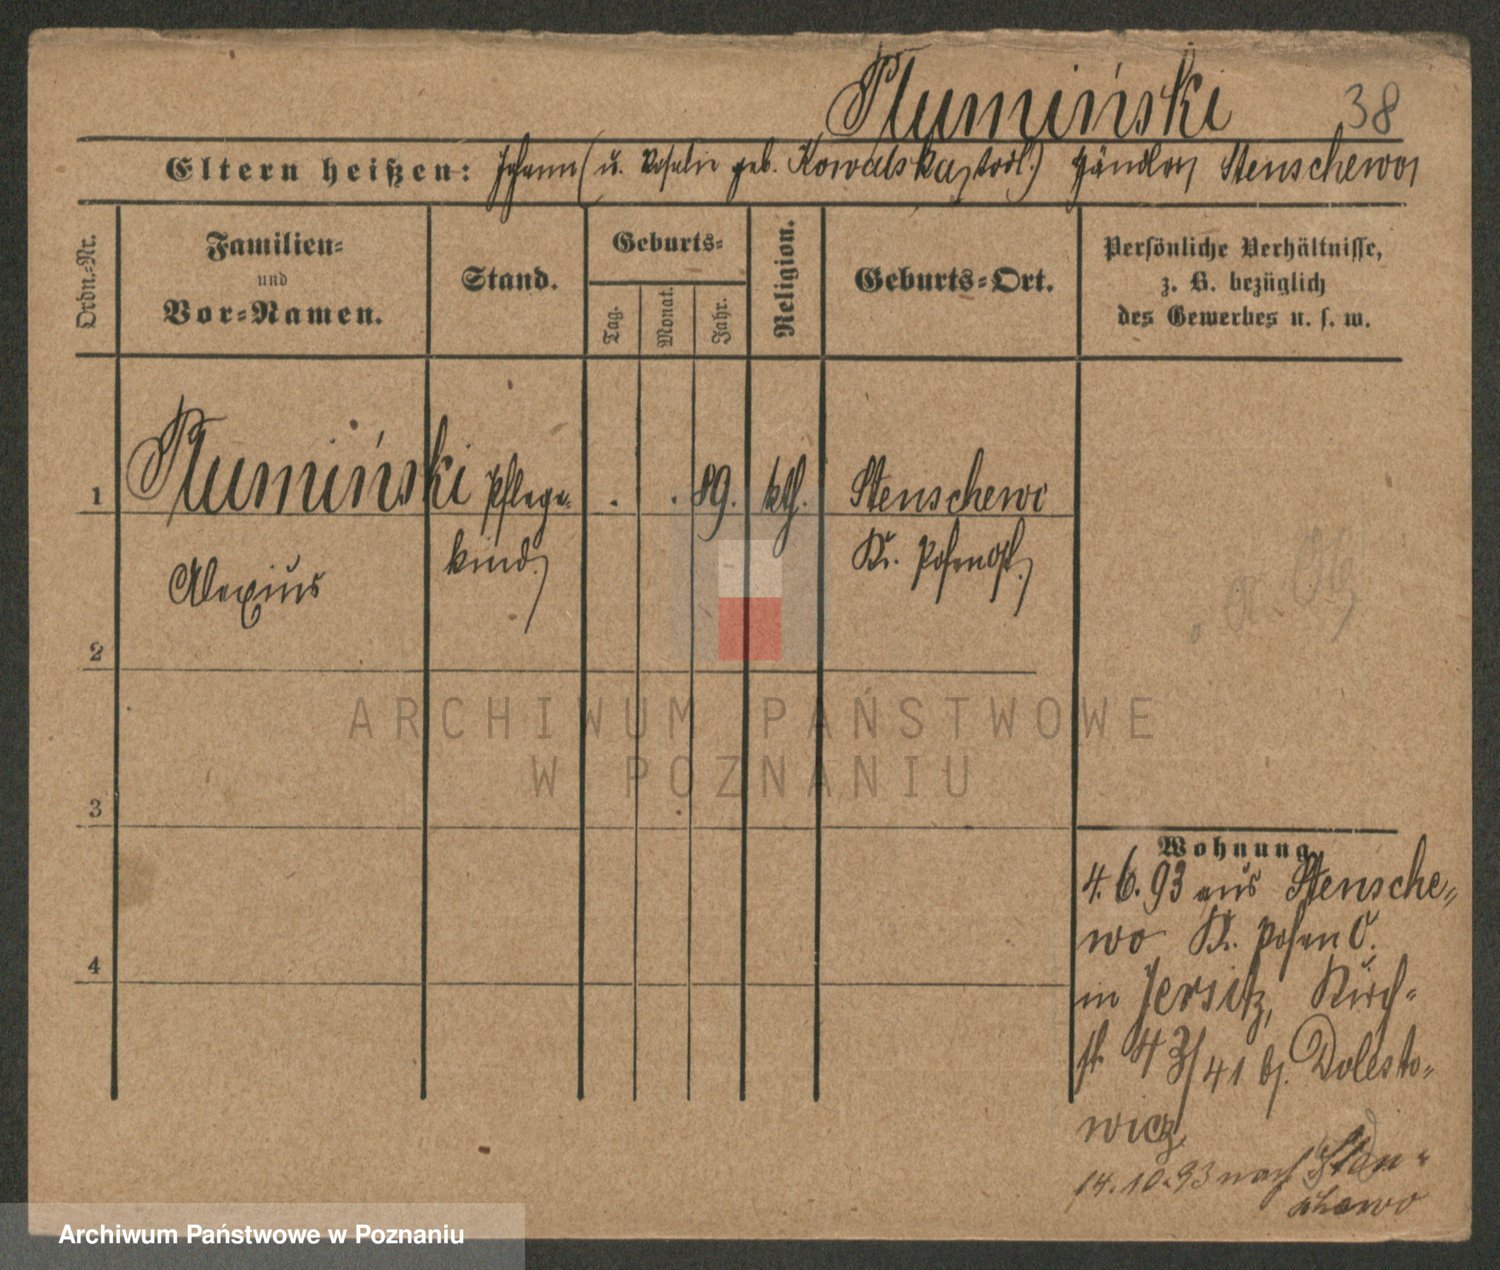 Plumiński 38
Eltern heißen: Johann (u. Rosalie geb. Kowalska, todt.) Händler, Stenschewo
Ordn.-Nr.
Familien-
und
Vor-Namen.
Stand.
Geburts-
Tag.
Monat.
Jahr.
Religion.
Geburts-Ort.
Persönliche Verhältnisse,
z. B. bezüglich
des Gewerbes u. s. w.
1 Plumiński Pflege- . . 89. kth. Stenschewo
Alexius kind, Kr. Posen Ost,
2
3
4
Wohnung.
4.6.93 aus Stensche-
wo Kr. Posen O.
in Jersitz, Kirch-
st. 43/41 bj. Dolesto-
wicz,
14.10.93 nach Sten-
schewo
ARCHIWUM PAŃSTWOWE
W POZNANIU
Archiwum Państwowe w Poznaniu